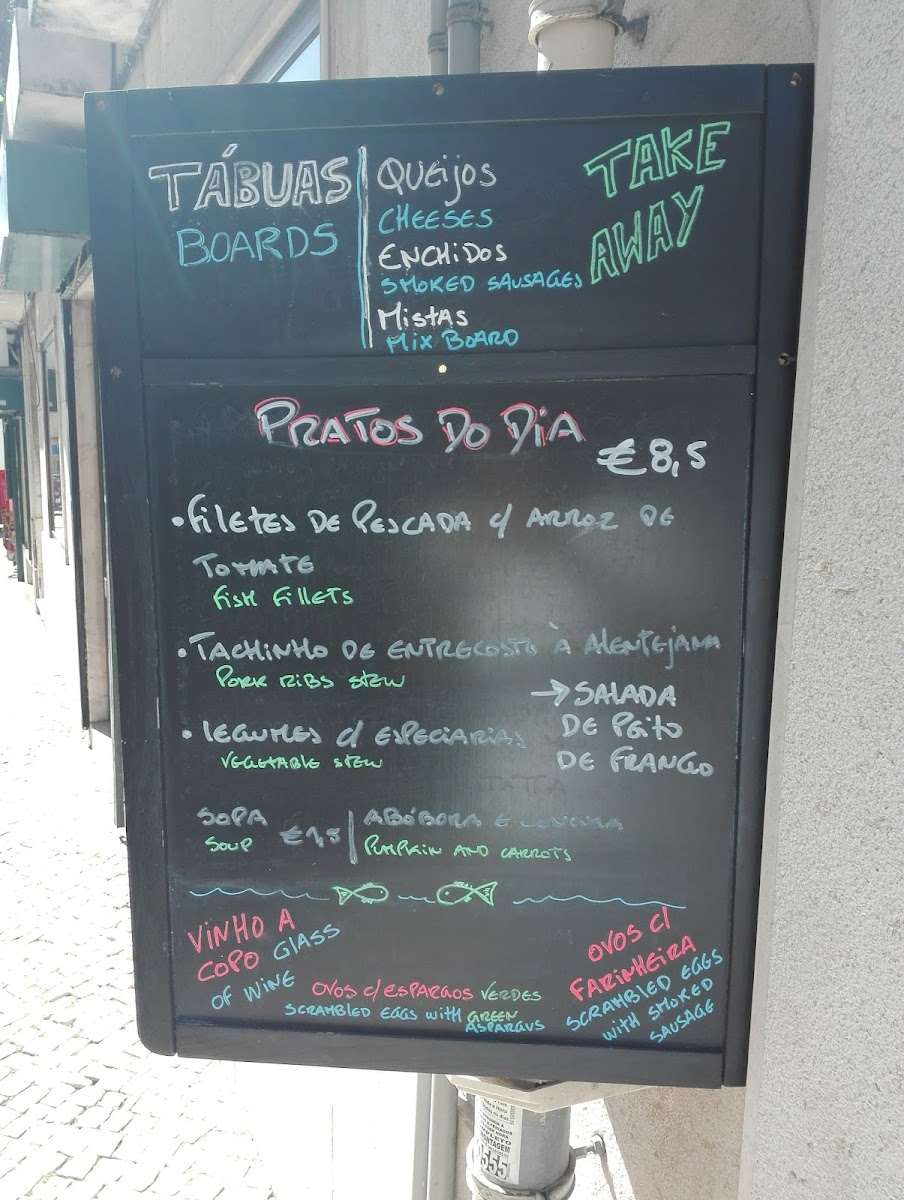 TÁBUAS
BOARDS
QUEIJOS
CHEESES
ENCHIDOS
SMOKED SAUSAGES
MISTAS
MIX BOARD
TAKE
AWAY
PRATOS DO DIA
€8,5
• FILETES DE PESCADA C/ ARROZ DE
TOMATE
FISH FILLETS
• TACHINHO DE ENTRECOSTO À ALENTEJANA
PORK RIBS STEW
→ SALADA
DE PEITO
DE FRANGO
• LEGUMES C/ ESPECIARIAS
VEGETABLE STEW
SOPA
SOUP
€1,5
ABÓBORA E CENOURA
PUMPKIN AND CARROTS
VINHO A
COPO GLASS
OF WINE
OVOS C/ ESPARGOS VERDES
SCRAMBLED EGGS WITH GREEN
ASPARGUS
OVOS C/
FARINHEIRA
SCRAMBLED EGGS
WITH SMOKED
SAUSAGE
MONTAGEM
555